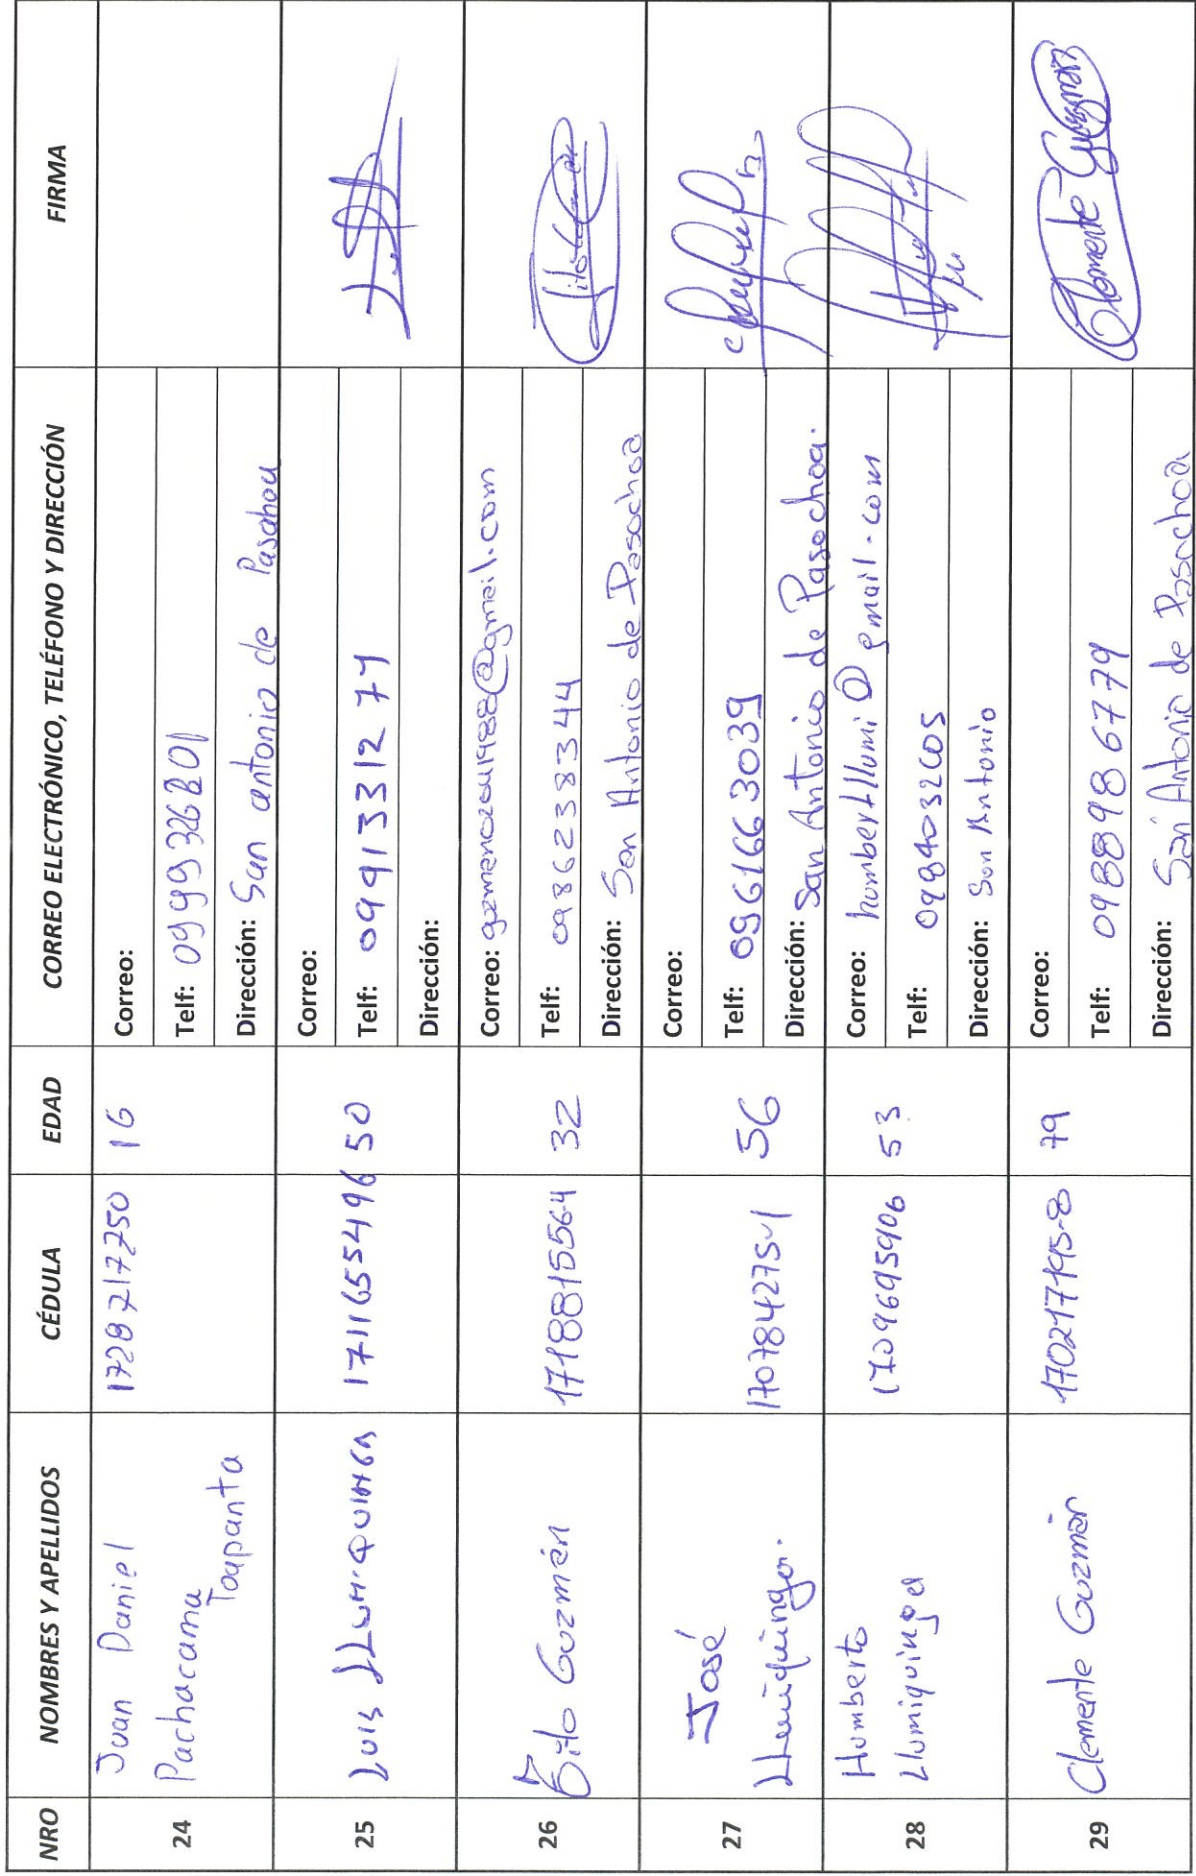 NRO NOMBRES Y APELLIDOS CÉDULA EDAD CORREO ELECTRÓNICO, TELÉFONO Y DIRECCIÓN FIRMA
24 Juan Daniel
Pachacama
Toapanta
1728717750 16
Correo:
Telf: 0999326801
Dirección: San antonio de Pasahou
25 Luis LLUMIQUINGA 1711655496 50
Correo:
Telf: 0991331277
Dirección:
26 Tito Guzmán 1718815564 32
Correo: gzmanozou1988@gmail.com
Telf: 0986238344
Dirección: San Antonio de Pasochoa
27 José
Llumiquinga.
170784275-1 56
Correo:
Telf: 0961663039
Dirección: San Antonio de Pasochoa.
28 Humberto
Llumiquinga
1709695906 53
Correo: humbertllumi@gmail.com
Telf: 0984032605
Dirección: San Antonio
29 Clemente Guzmán 170217195-8 79
Correo:
Telf: 0988986779
Dirección: San Antonio de Pasochoa
Clemente Guzmán